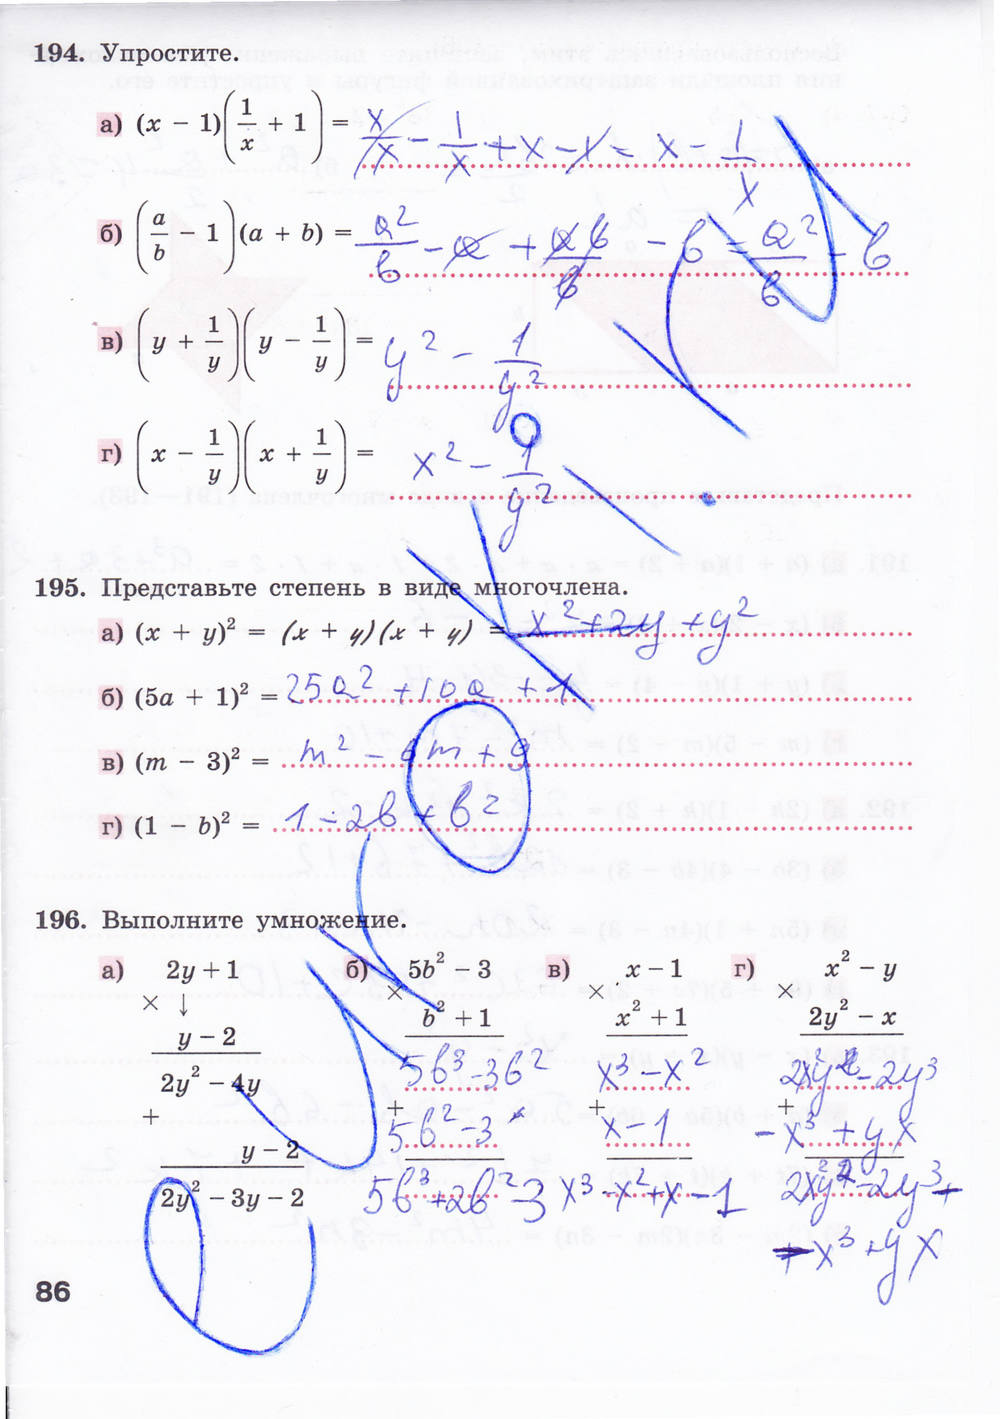 194. Упростите.
а) (x − 1)(1/x + 1) = x/x − 1/x + x − 1 = x − 1/x
б) (a/b − 1)(a + b) = a²/b − a + ab/b − b = a²/b − b
в) (y + 1/y)(y − 1/y) = y² − 1/y²
г) (x − 1/y)(x + 1/y) = x² − 1/y²
195. Представьте степень в виде многочлена.
а) (x + y)² = (x + y)(x + y) = x² + 2y + y²
б) (5a + 1)² = 25a² + 10a + 1
в) (m − 3)² = m² − 6m + 9
г) (1 − b)² = 1 − 2b + b²
196. Выполните умножение.
а) 2y + 1 б) 5b² − 3 в) x − 1 г) x² − y
× ↓ × × ×
y − 2 b² + 1 x² + 1 2y² − x
2y² − 4y 5b³ − 3b² x³ − x² 2x²y² − 2y³
+ + + +
y − 2 5b² − 3 x − 1 − x³ + yx
2y² − 3y − 2 5b³ + 2b² − 3 x³ − x² + x − 1 2x²y² − 2y³ +
− x³ + yx
86